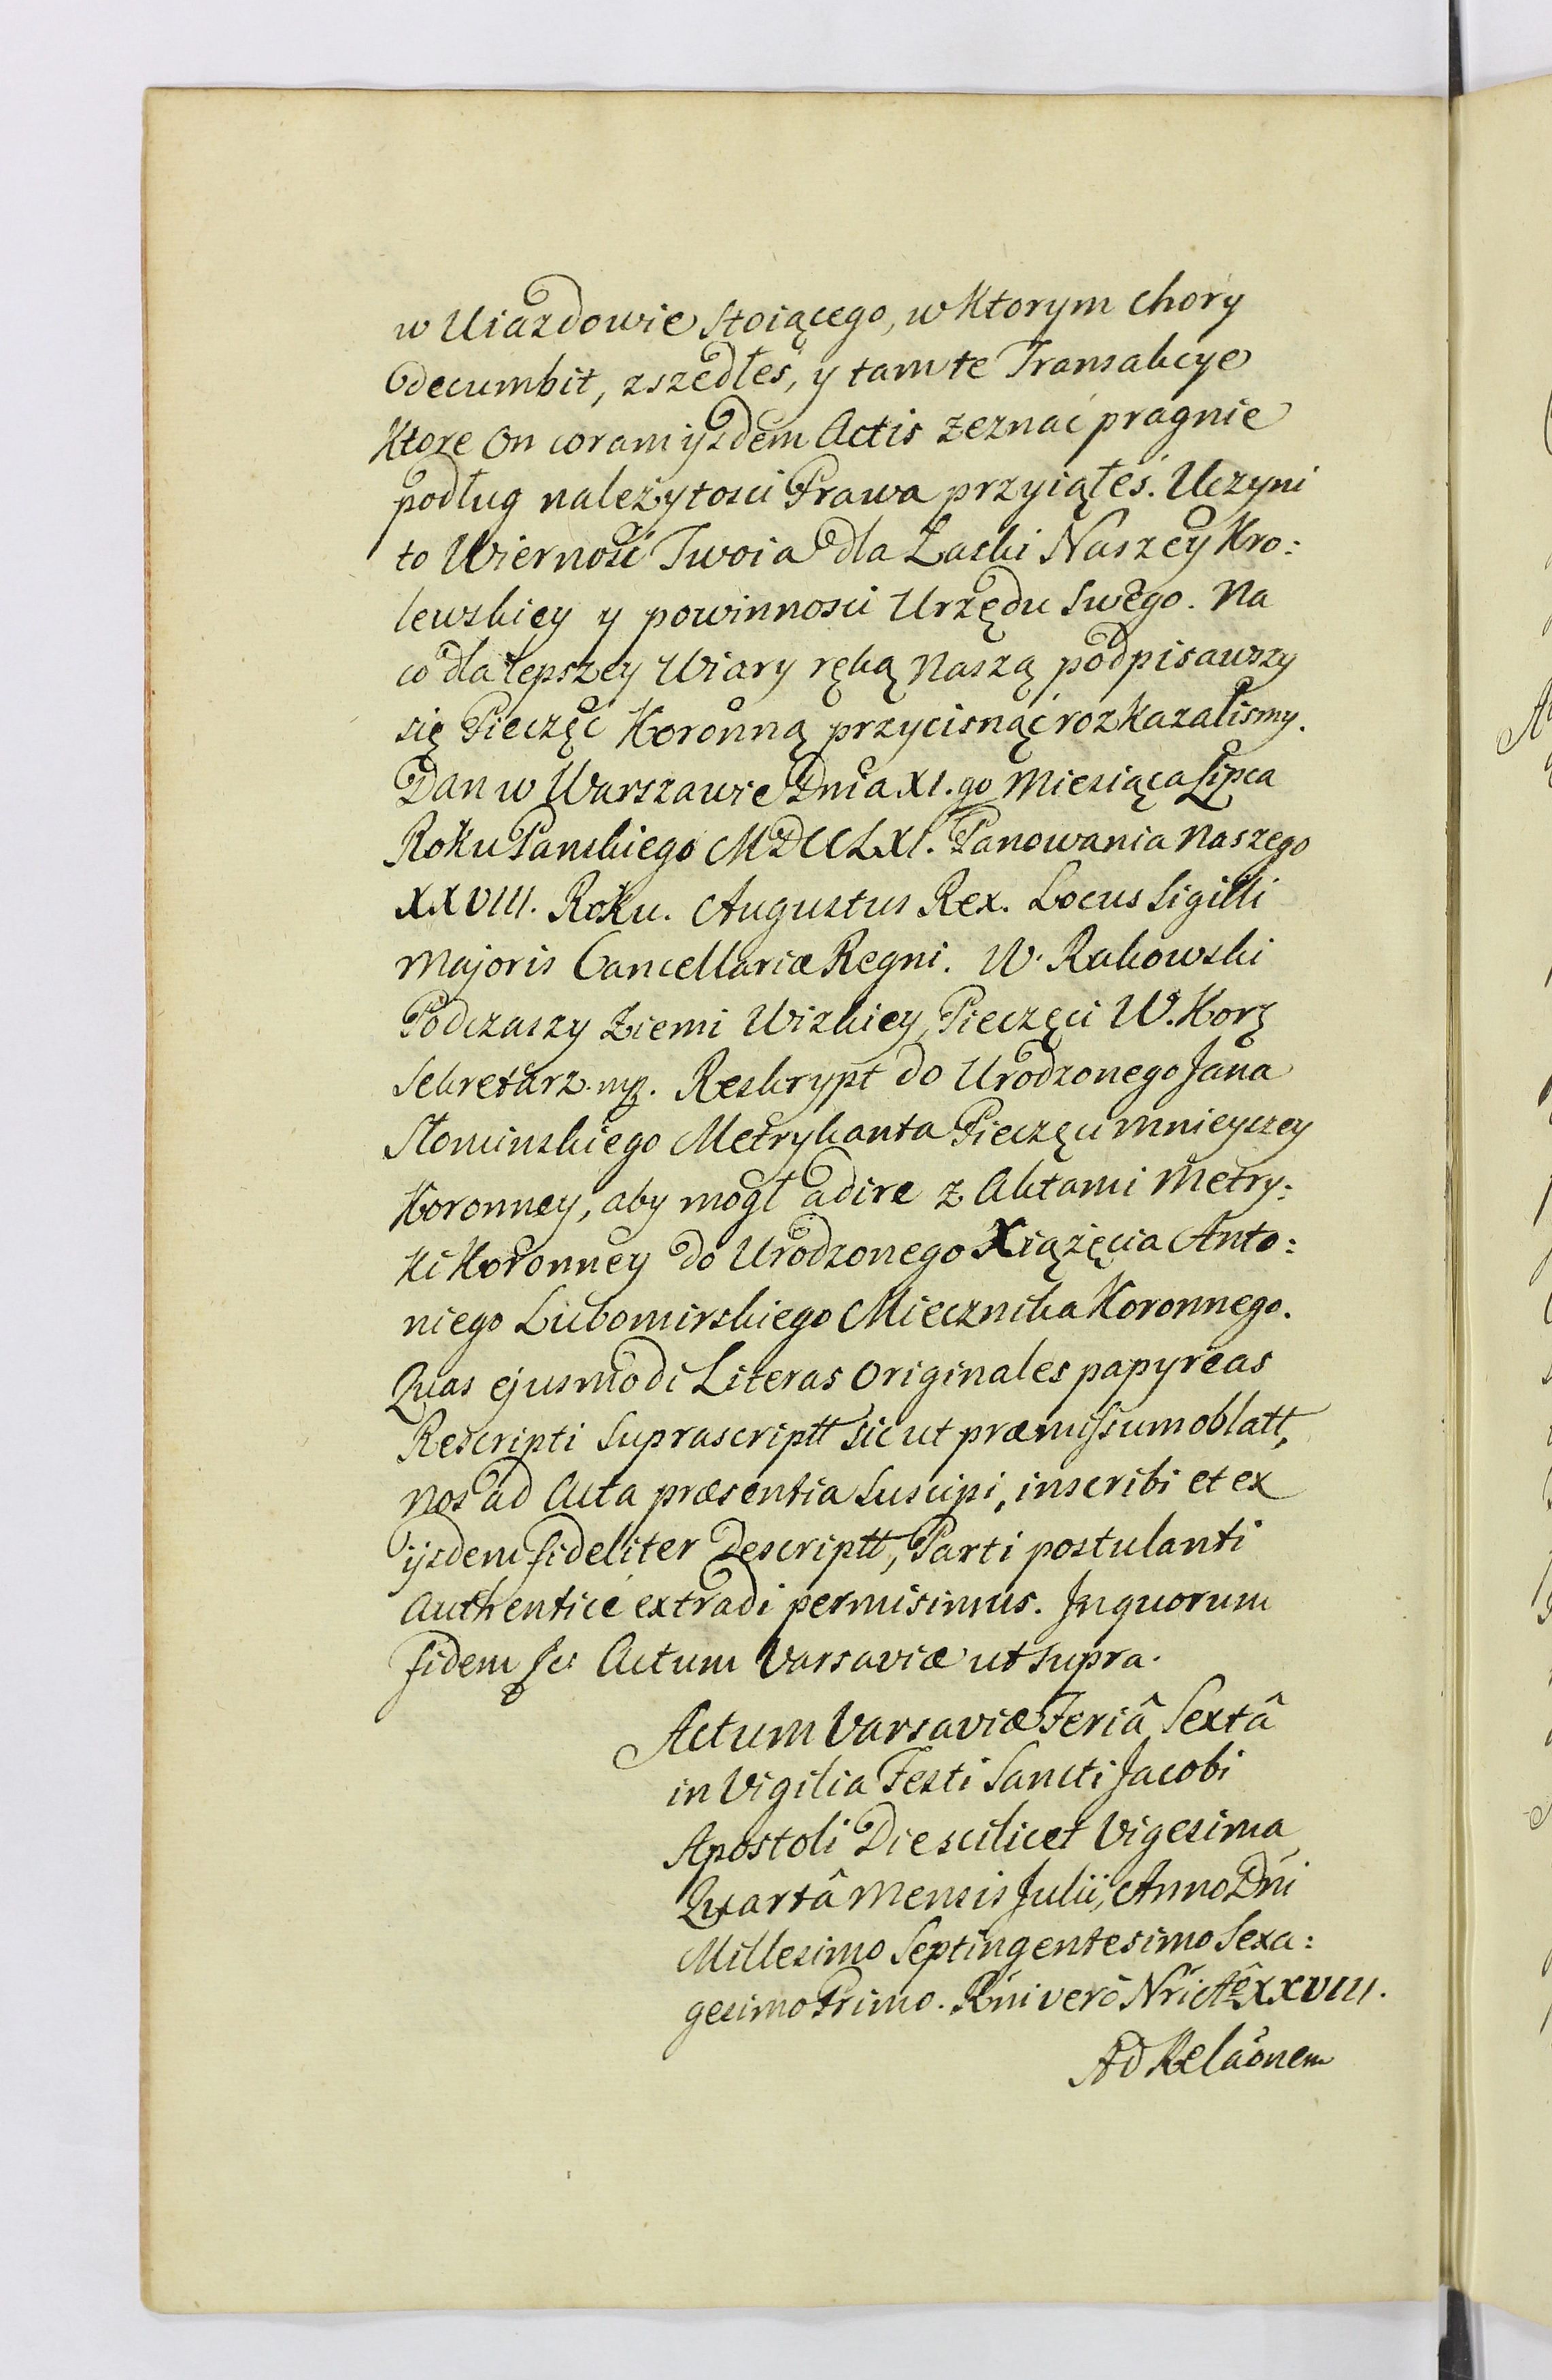 w Uiazdowie stoiącego, w Ktorym chory
decumbit, zszedłeś, y tam te Transakcye
Ktore On coram ijsdem Actis zeznać pragnie
podług należytosci Prawa przyiąłeś. Uczyni
to Wierność Twoia dla Łaski Naszey Kro:
lewskiey y powinnosci Urzędu swego. Na
co dla lepszey Wiary ręką Naszą podpisawszy
się Pieczęć Koronną przycisnąć rozkazalismy.
Dan w Warszawie Dnia XI.go Miesiąca Lipca
Roku Panskiego MDCCLXI. Panowania Naszego
XXVIII. Roku. Augustus Rex. Locus Sigilli
Majoris Cancellariæ Regni. W. Rakowski
Podczaszy Ziemi Wizkiey, Pieczęci W. Kor
Sekretarz. mp. Reskrypt do Urodzonego Jana
Słominskiego Metrykanta Pieczęci mnieyszey
Koronney, aby mogł adire z Aktami Metry:
ki Koronney do Urodzonego Xiążęcia Anto:
niego Lubomirskiego Miecznika Koronnego.
Quas ejusmodi Literas Originales papyreas
Rescripti Suprascriptt sic ut præmissum oblatt,
nos ad Acta præsentia suscipi, inscribi et ex
ijsdem fideliter Descriptt, Parti postulanti
Authenticè extradi permisimus. In quorum
fidem &c Actum Varsaviæ ut supra.
Actum Varsaviæ Feriâ Sextâ
in Vigilia Festi Sancti Jacobi
Apostoli Die scilicet Vigesima
Quartâ Mensis Julii, Anno Dñi
Millesimo Septingentesimo Sexa:
gesimo Primo. Rñi verò Nri XXVIII.
Ad Relãonem